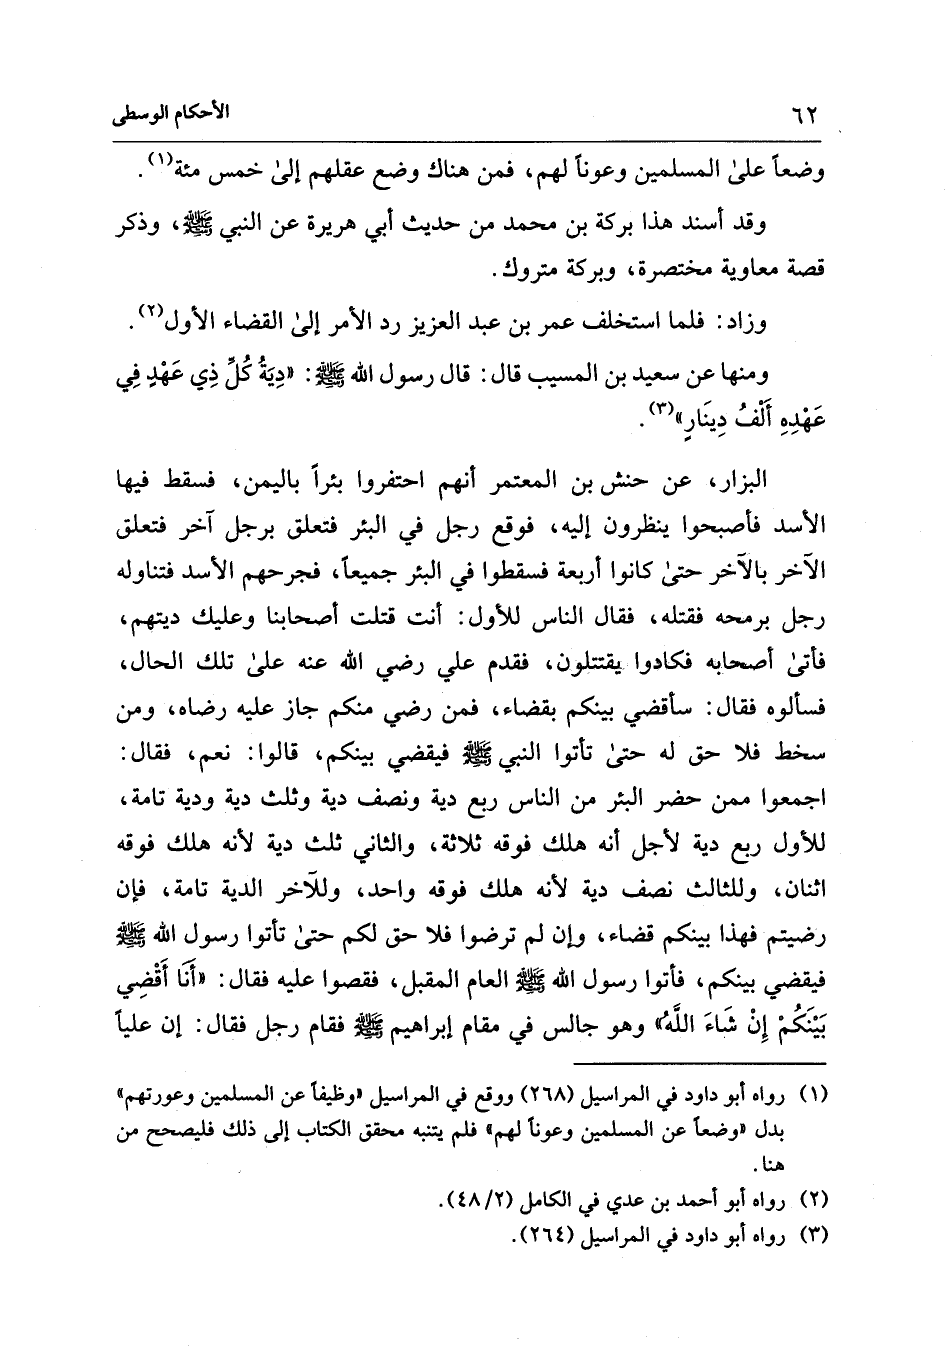 ٦٢ الأحكام الوسطى
وضعاً علىٰ المسلمين وعوناً لهم، فمن هناك وضع عقلهم إلىٰ خمس مئة(١).
وقد أسند هذا بركة بن محمد من حديث أبي هريرة عن النبي ﷺ، وذكر
قصة معاوية مختصرة، وبركة متروك.
وزاد: فلما استخلف عمر بن عبد العزيز رد الأمر إلىٰ القضاء الأول(٢).
ومنها عن سعيد بن المسيب قال: قال رسول الله ﷺ: «دِيَةُ كُلِّ ذِي عَهْدٍ فِي
عَهْدِهِ أَلْفُ دِينَارٍ»(٣).
البزار، عن حنش بن المعتمر أنهم احتفروا بئراً باليمن، فسقط فيها
الأسد فأصبحوا ينظرون إليه، فوقع رجل في البئر فتعلق برجل آخر فتعلق
الآخر بالآخر حتىٰ كانوا أربعة فسقطوا في البئر جميعاً، فجرحهم الأسد فتناوله
رجل برمحه فقتله، فقال الناس للأول: أنت قتلت أصحابنا وعليك ديتهم،
فأتىٰ أصحابه فكادوا يقتتلون، فقدم علي رضي الله عنه علىٰ تلك الحال،
فسألوه فقال: سأقضي بينكم بقضاء، فمن رضي منكم جاز عليه رضاه، ومن
سخط فلا حق له حتىٰ تأتوا النبي ﷺ فيقضي بينكم، قالوا: نعم، فقال:
اجمعوا ممن حضر البئر من الناس ربع دية ونصف دية وثلث دية ودية تامة،
للأول ربع دية لأجل أنه هلك فوقه ثلاثة، والثاني ثلث دية لأنه هلك فوقه
اثنان، وللثالث نصف دية لأنه هلك فوقه واحد، وللآخر الدية تامة، فإن
رضيتم فهذا بينكم قضاء، وإن لم ترضوا فلا حق لكم حتىٰ تأتوا رسول الله ﷺ
فيقضي بينكم، فأتوا رسول الله ﷺ العام المقبل، فقصوا عليه فقال: «أَنَا أَقْضِي
بَيْنَكُمْ إِنْ شَاءَ اللَّهُ» وهو جالس في مقام إبراهيم ﷺ فقام رجل فقال: إن علياً
(١) رواه أبو داود في المراسيل (٢٦٨) ووقع في المراسيل «وظيفاً عن المسلمين وعورتهم»
بدل «وضعاً عن المسلمين وعوناً لهم» فلم يتنبه محقق الكتاب إلى ذلك فليصحح من
هنا.
(٢) رواه أبو أحمد بن عدي في الكامل (٤٨/٢).
(٣) رواه أبو داود في المراسيل (٢٦٤).